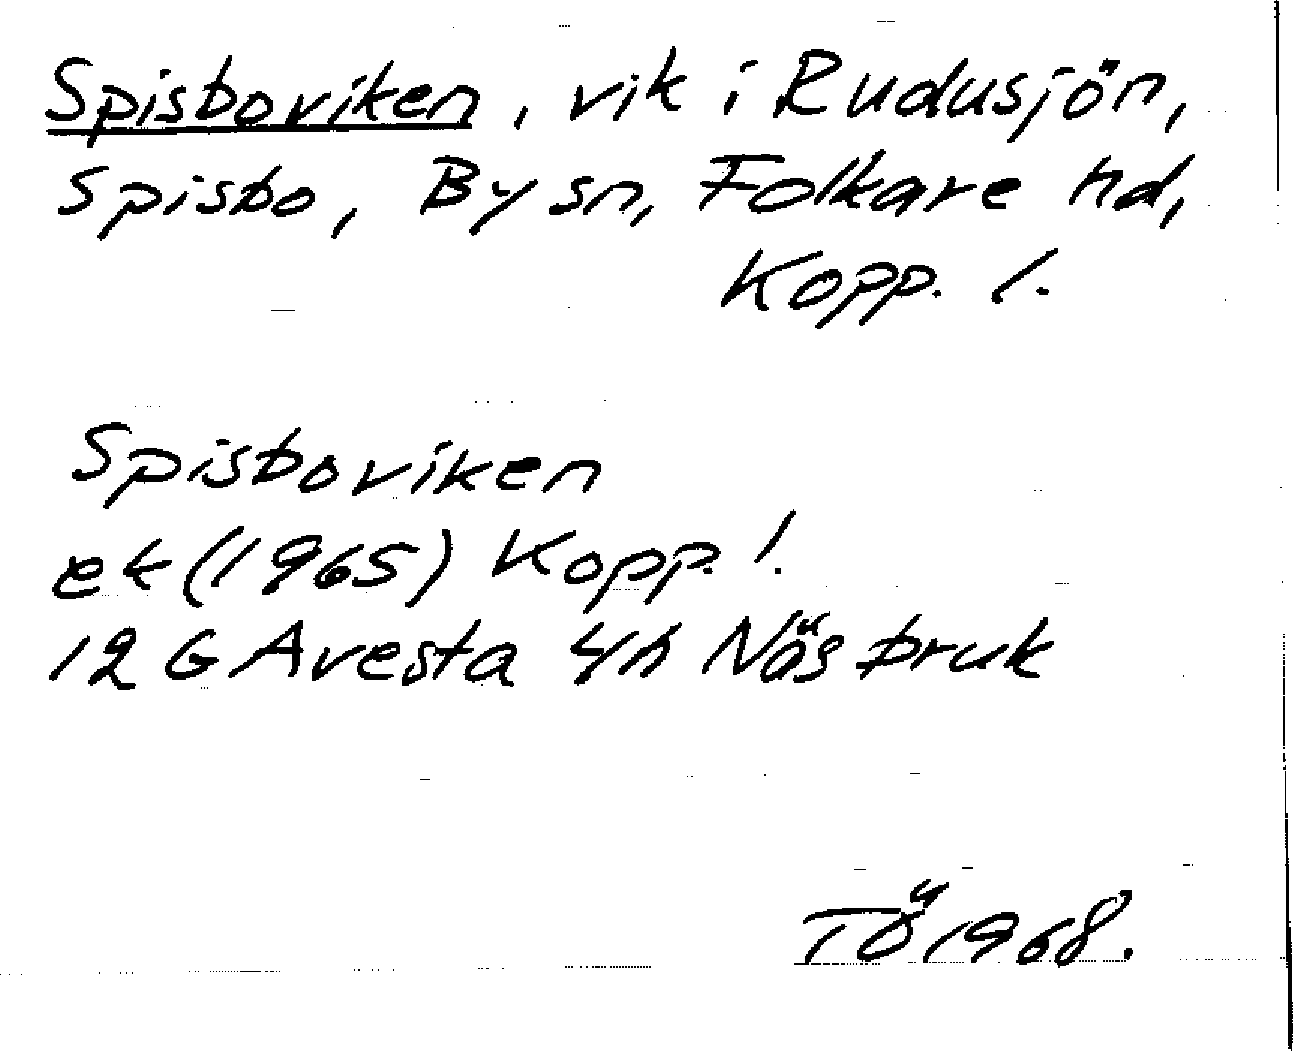 Spisboviken, vik i Rudusjön,
Spisbo, By sn, Folkare hd,
Kopp. l.
Spisboviken
ek (1965) Kopp. l.
12 G Avesta 4h Näs bruk
TÖ 1968.